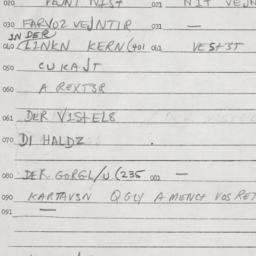 020 021 NIT VEJN
030 FARVOZ VEJNTIR 031 —
IN DER
040 LINKN KERN (401 041 VESt3T
050 CUKAJT
060 A REXT3R
061 DER VIStEL8
070 DI HALDZ .
080 DER GORGL/U (235 081 —
090 KARTAVSN QGLY A MENCt VOS RET
091 —